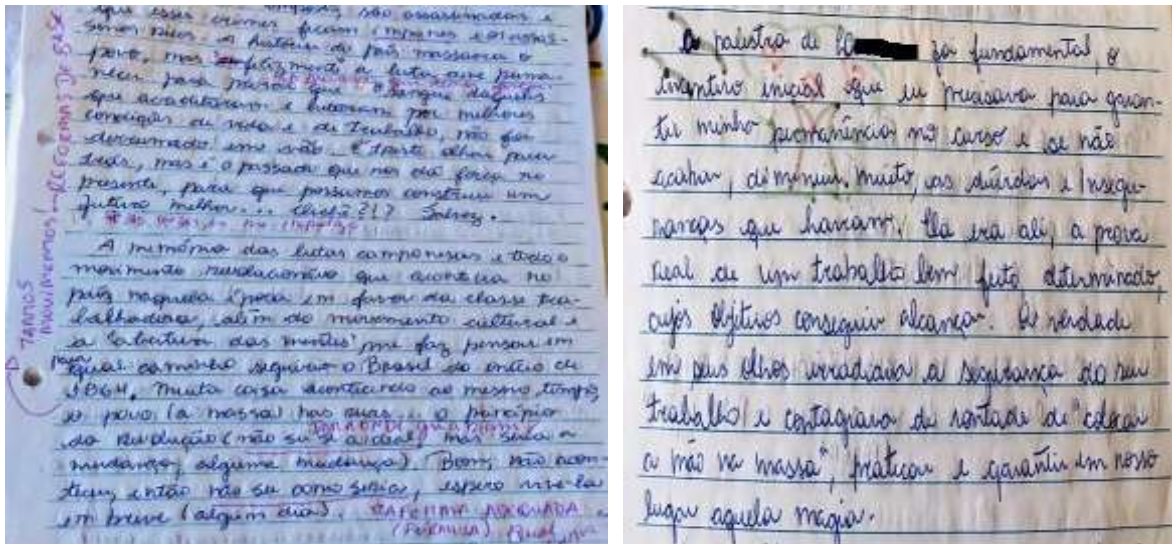 que esses crimes ficam impunes
povo, mas infelizmente a luta
necer para mostrar que o sangue daqueles
que acreditaram e lutaram por melhores
condições de vida e de trabalho, não foi
derramado em vão. É triste olhar para
trás, mas é o passado que nos dá força no
presente, para que possamos construir um
futuro melhor... Clichê?!?
A memória das lutas camponesas e todo o
movimento revolucionário que acontecia no
país naquela época em favor da classe tra-
balhadora, além do movimento cultural e
a "abertura das mentes" me faz pensar em
para qual caminho seguiria o Brasil do início de
1964. Muita coisa acontecendo ao mesmo tempo,
o povo (a massa) nas ruas... o princípio
da revolução (não sei se a ideal, mas seria a
mudança, alguma mudança). Bom, não acon-
teceu, então não sei como seria, espero vive-la
em breve (algum dia).
REFORMAS DE BASE
A palestra de foi fundamental, o
incentivo inicial que eu precisava para garan-
tir minha permanência no curso e se não
acabar, diminuir, muito, as dúvidas e insegu-
ranças que haviam. Ela era ali, a prova
real de um trabalho bem feito, determinado,
cujos objetivos conseguiu alcançar. A verdade
em seus olhos irradiava a segurança do seu
trabalho e contagiava de vontade de "colocar
a mão na massa", praticar e garantir em nosso
lugar aquela magia.